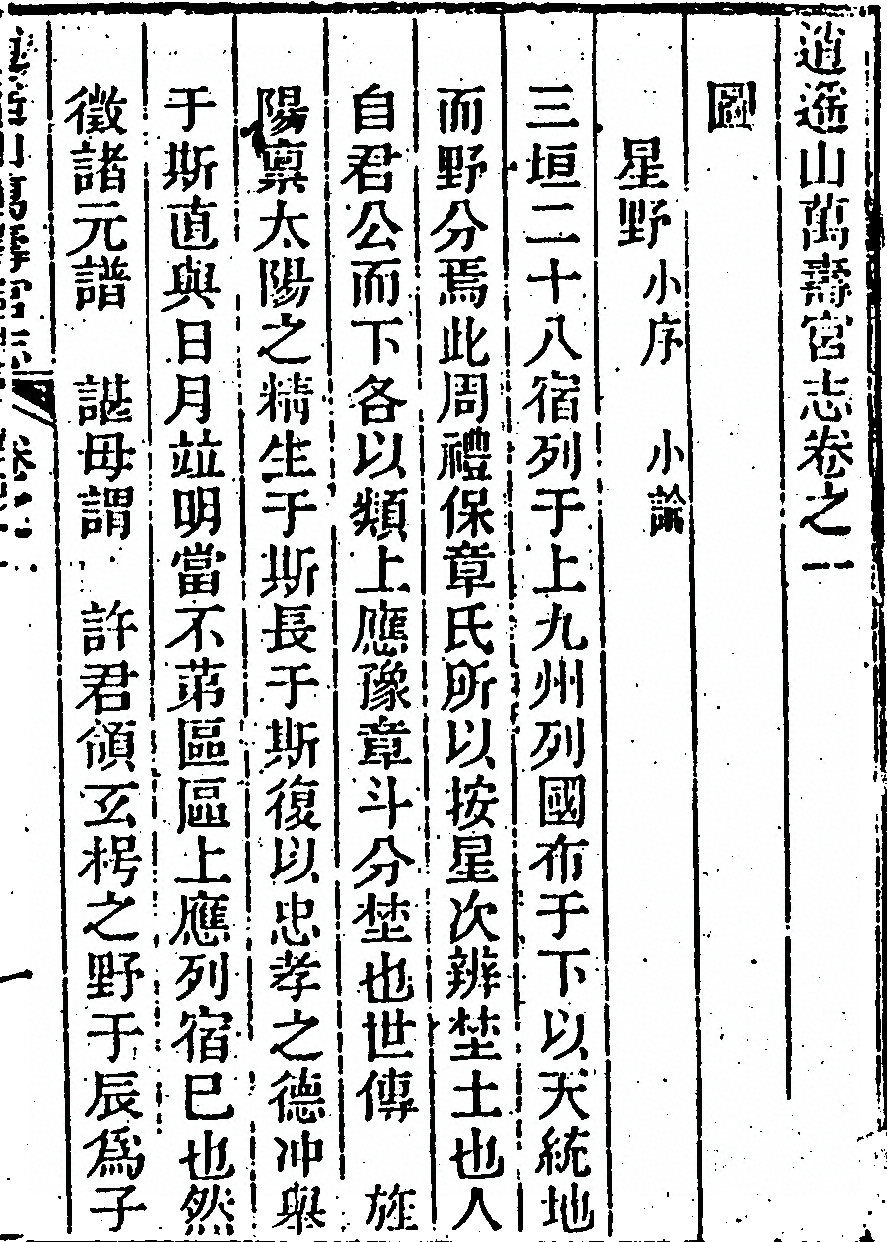 逍遥山萬壽宮志卷之一
圖
星野 小序 小論
三垣二十八宿列于上九州列國布于下以天統地
而野分焉此周禮保章氏所以按星次辨埜土也人
自君公而下各以類上應豫章斗分埜也世傳 旌
陽稟太陽之精生于斯長于斯復以忠孝之德冲舉
于斯直與日月竝明當不苐區區上應列宿巳也然
徵諸元譜 諶母謂 許君領玄枵之野于辰爲子
卷之一
一